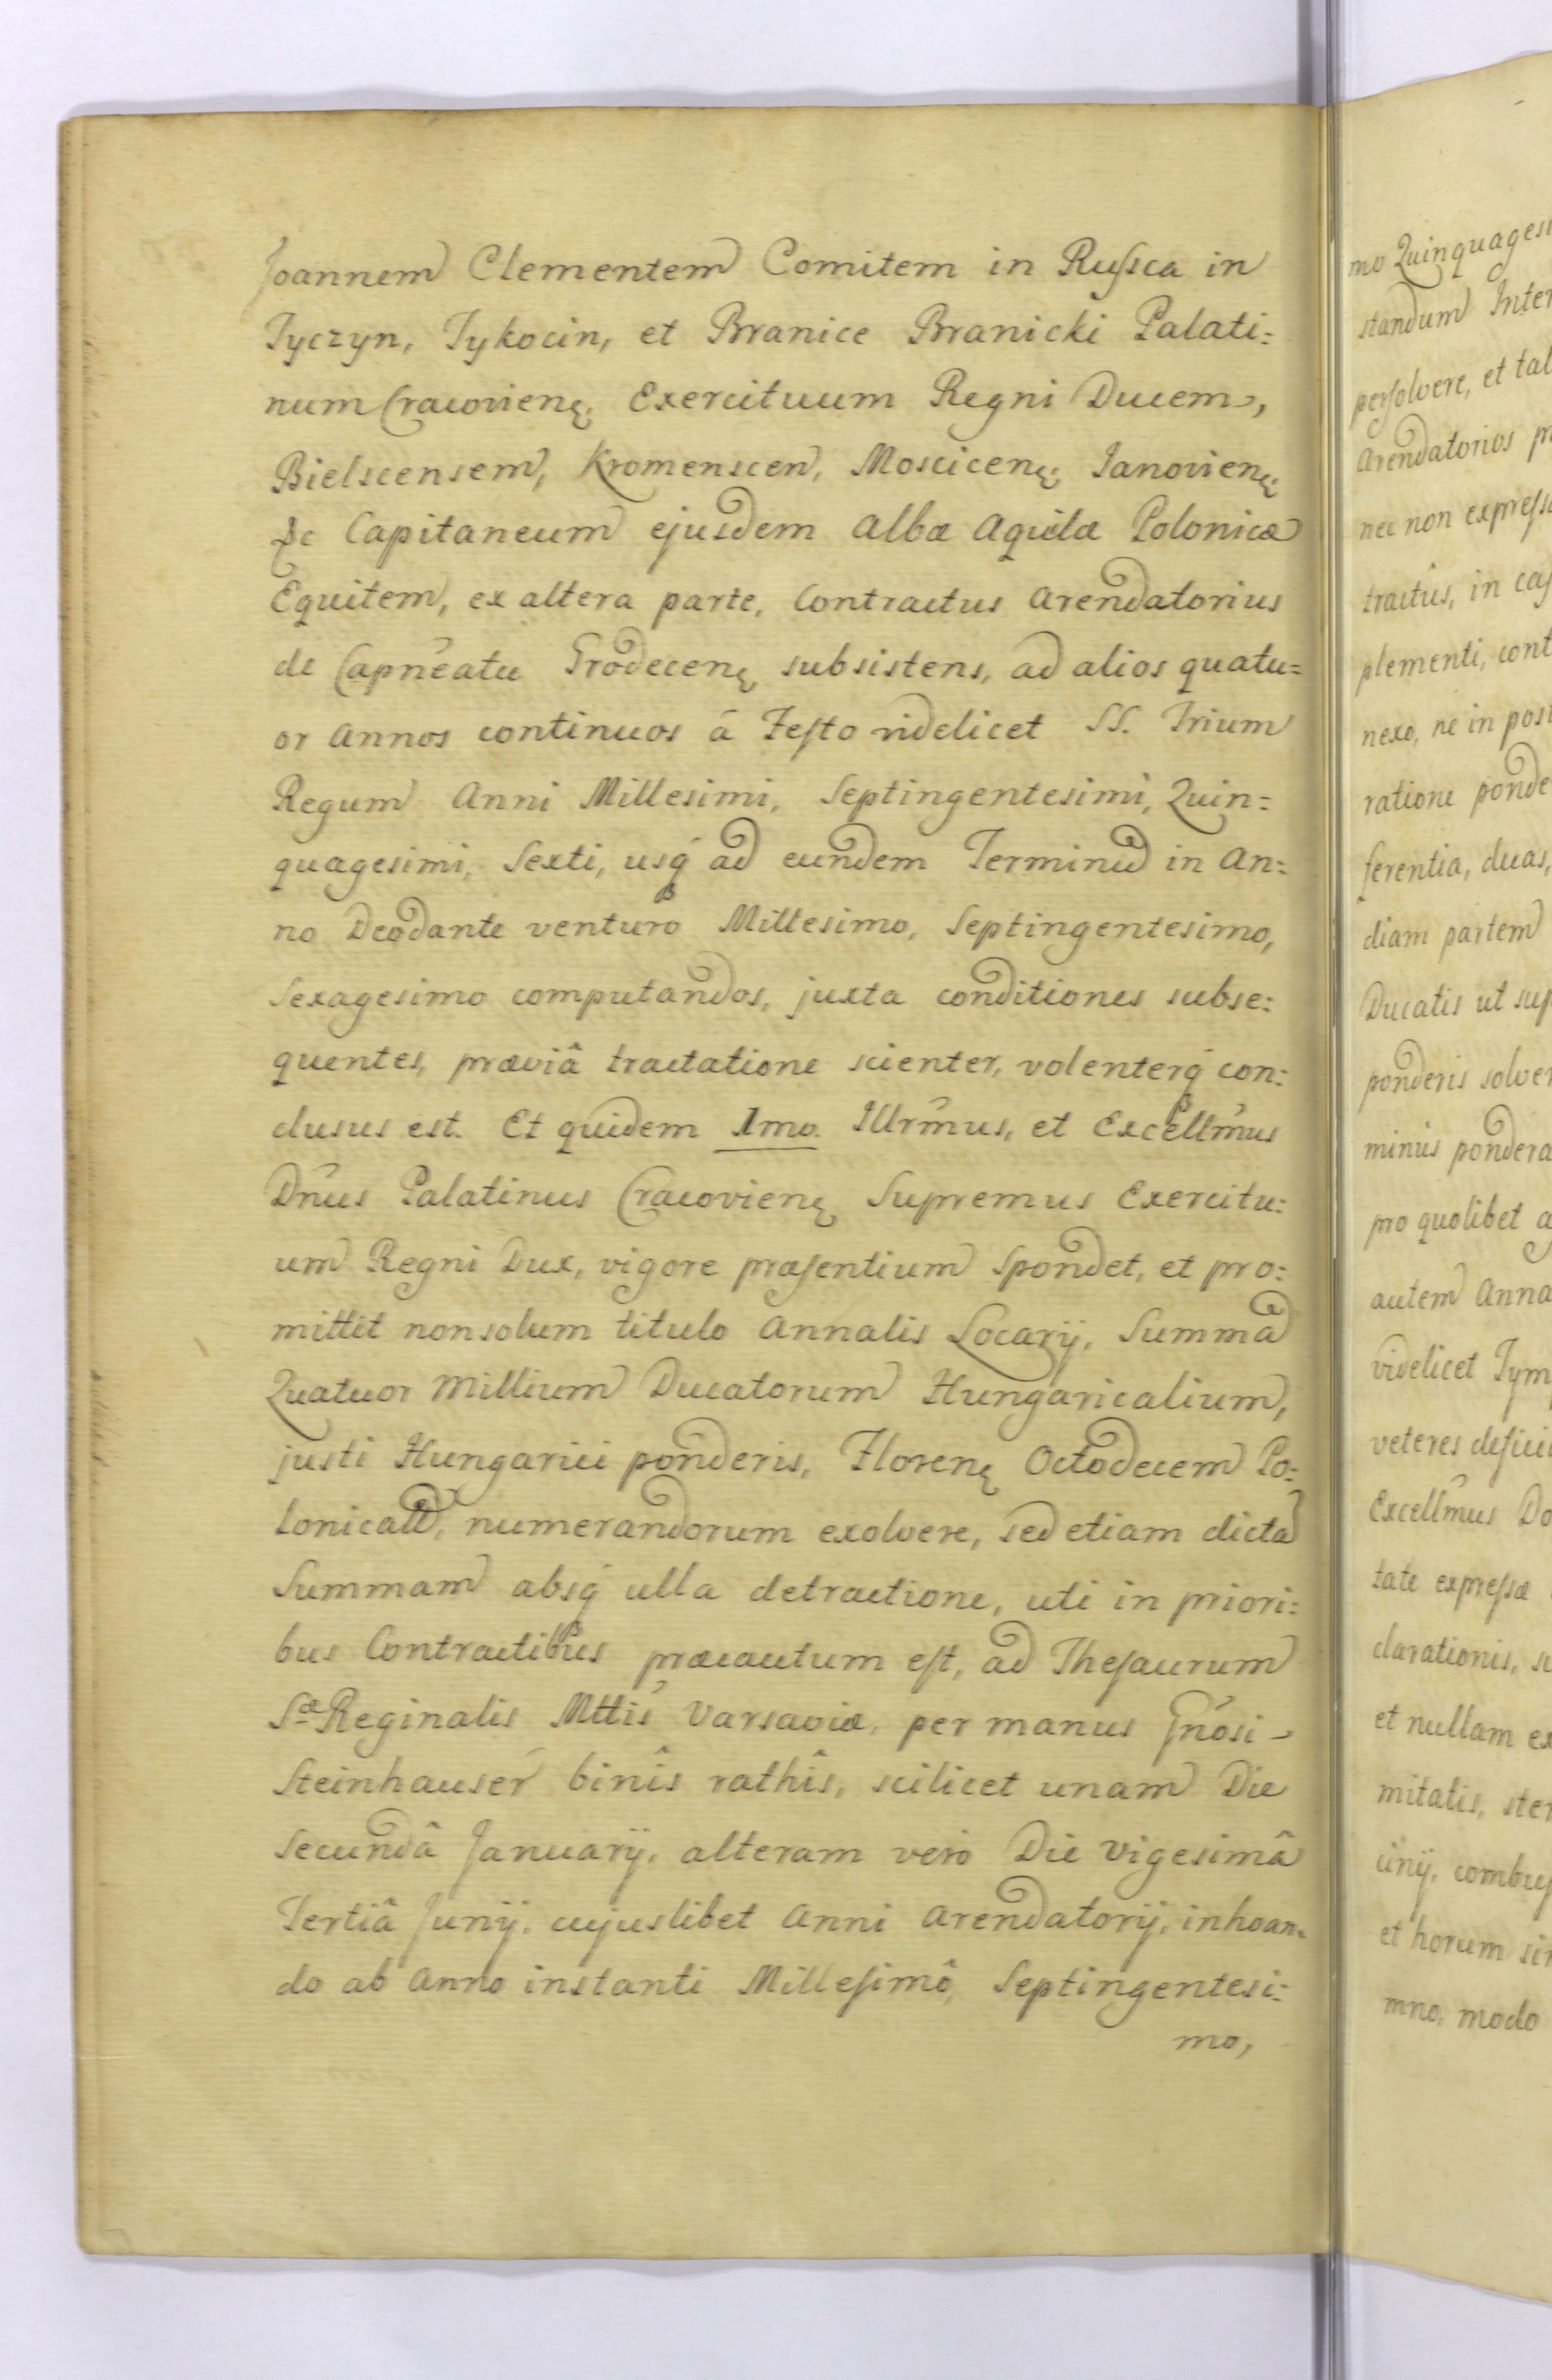 Joannem Clementem Comitem in Ruſsca in
Tyczyn, Tykocin, et Branice Branicki Palati:
num Cracovienę. Exercituum Regni Ducem,
Bielscensem, Kromenscen, Moscicenę. Janovienę.
&c Capitaneum ejusdem Albæ Aquilæ Polonicæ
Equitem, ex altera parte, Contractus Arendatorius
de Capñeatu Grodecenę subsistens, ad alios quatu=
or Annos continuos á Feſto videlicet SS. Trium
Regum Anni Millesimi, Septingentesimi, Quin=
quagesimi, Sexti, usq́ ad eundem Terminū in An:
no Deodante venturo Millesimo, Septingentesimo,
Sexagesimo computandos, juxta conditiones subse:
quentes, præviâ tractatione scienter, volenterq́ con:
clusus est. Et quidem 1mo. Illrm̃us, et Excellm̃us
Dñus Palatinus Cracovienę Supremus Exercitu:
um Regni Dux, vigore præſentium Spondet, et pro:
mittit nonsolum titulo Annalis Locarij, Summã
Quatuor Millium Ducatorum Hungaricalium,
justi Hungarici ponderis, Florenę Octodecem Po:
lonicaliū, numerandorum exolvere, sed etiam dictã
Summam absq́ ulla detractione, uti in priori:
bus Contractibus præcautum eſt, ad Theſaurum
Sæ Reginalis Mttis Varsaviæ, per manus Gñosi
Steinhauser binîs rathîs, scilicet unam Die
Secundâ Januarij, alteram verò Die Vigesimâ
Tertiâ Junij, cujuslibet Anni Arendatorij, inhoan=
do ab Anno instanti Milleſimô, Septingentesi:
mo,
mo Quinquagesi
standum Inter
perſolvere, et tal
Arendatorios p
nec non expreſs
tractûs, in caſ
plementi, cont
nexo, ne in post
ratione ponde
ferentia, duas,
diam partem
Ducatis ut sup
ponderis solver
minùs pondera
pro quolibet a
autem Anna
videlicet Tym
veteres defici
Excellm̃us Do
tate expreſsæ
clarationis, su
et nullam ex
mitatis, ster
cinij, combuſ
et horum si
mno, modo